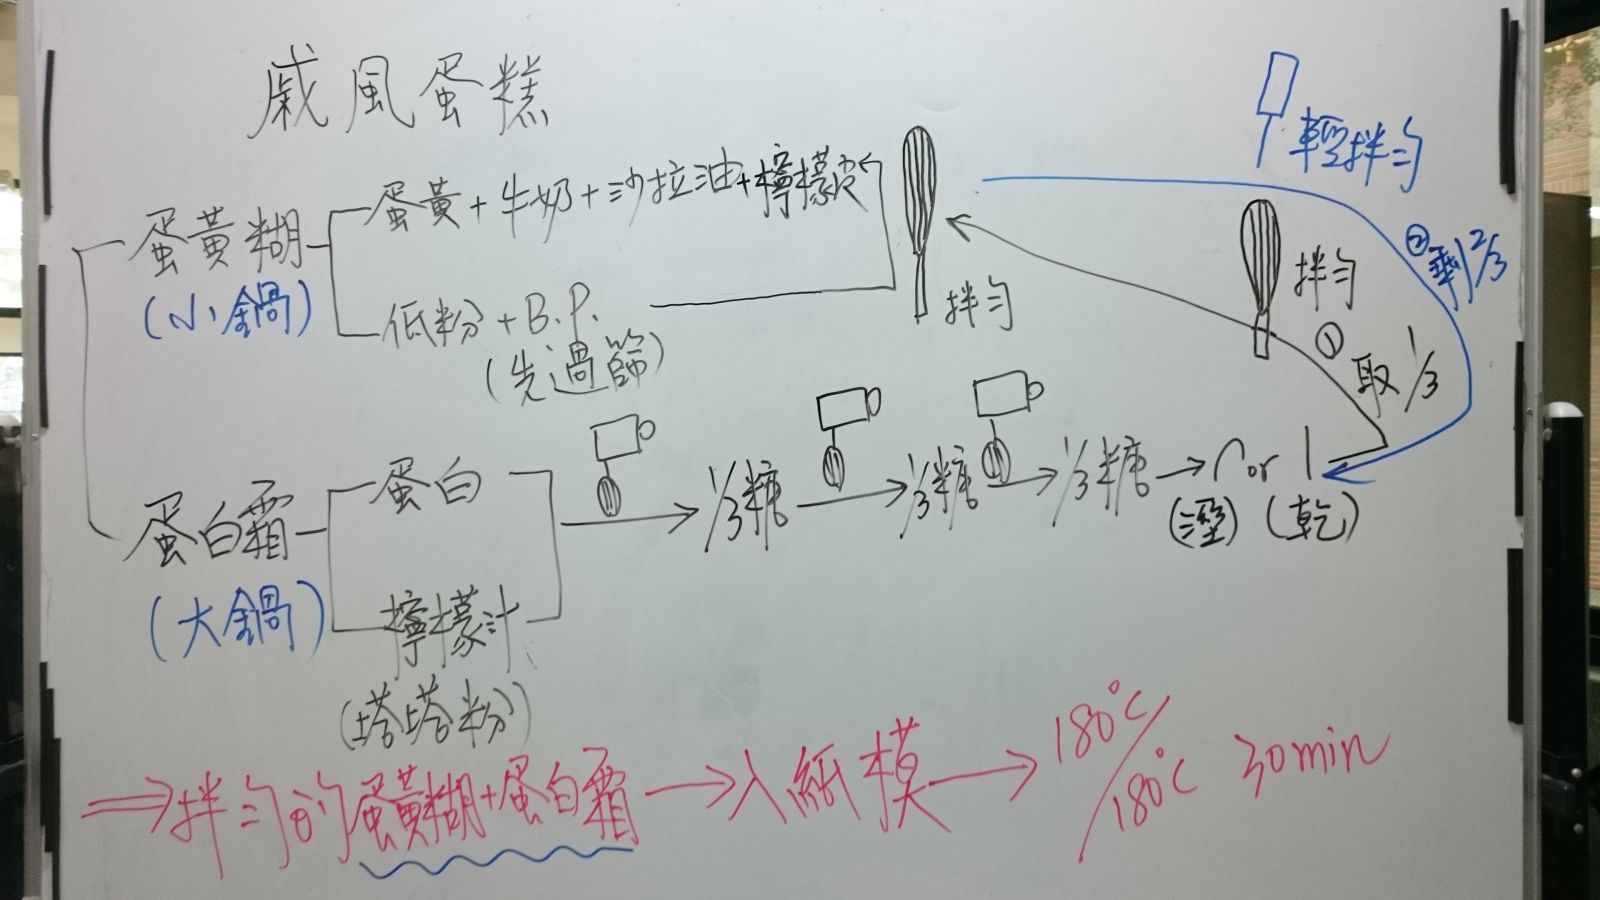 戚風蛋糕
蛋黃糊
(小鍋)
蛋黃+牛奶+沙拉油+檸檬皮
低粉+B.P.
(先過篩)
拌勻
輕拌勻
②剩2/3
拌勻
①
取1/3
蛋白霜
(大鍋)
蛋白
檸檬汁
(塔塔粉)
1/3糖
1/3糖
1/3糖
or
(溼)
(乾)
⇒拌勻的蛋黃糊+蛋白霜→入紙模→180°C/180°C 30min